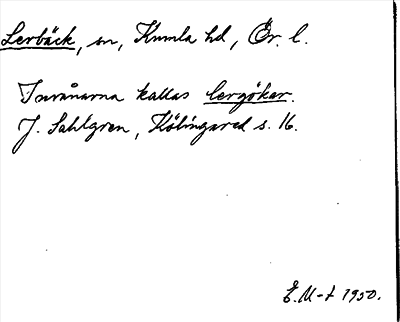 Lerbäck, sn, Kumla hd, Ör. l.
Invånarna kallas lergökar.
J. Sahlgren, Hölingared s. 16.
E. M-t 1950.